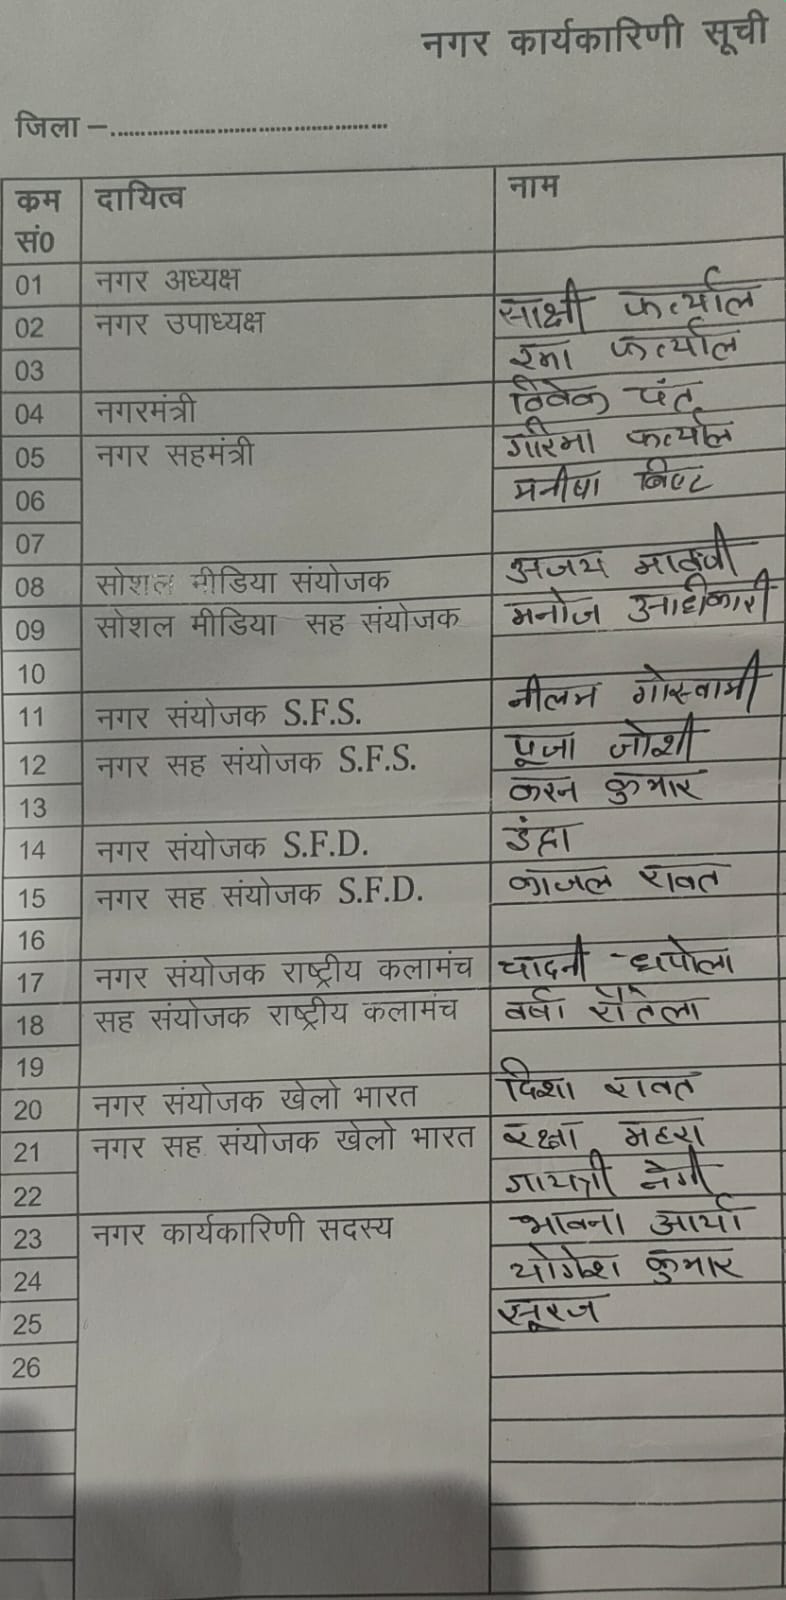 नगर कार्यकारिणी सूची
जिला –................................................
कम सं0 दायित्व नाम
01 नगर अध्यक्ष
02 नगर उपाध्यक्ष साक्षी फर्त्याल
03 रमा फर्त्याल
04 नगरमंत्री विवेक पंत
05 नगर सहमंत्री गरिमा फर्त्याल
06 मनीषा बिष्ट
07
08 सोशल मीडिया संयोजक अजय
09 सोशल मीडिया सह संयोजक मनोज अधिकारी
10
11 नगर संयोजक S.F.S. नीलम गोस्वामी
12 नगर सह संयोजक S.F.S. पूजा जोशी
13 करन कुमार
14 नगर संयोजक S.F.D.
15 नगर सह संयोजक S.F.D. काजल रावत
16
17 नगर संयोजक राष्ट्रीय कलामंच चादनी धपोला
18 सह संयोजक राष्ट्रीय कलामंच वर्षा रौतेला
19
20 नगर संयोजक खेलो भारत दिशा रावत
21 नगर सह संयोजक खेलो भारत रक्षा महरा
22 गायत्री नेगी
23 नगर कार्यकारिणी सदस्य भावना आर्या
24 योगेश कुमार
25 सूरज
26